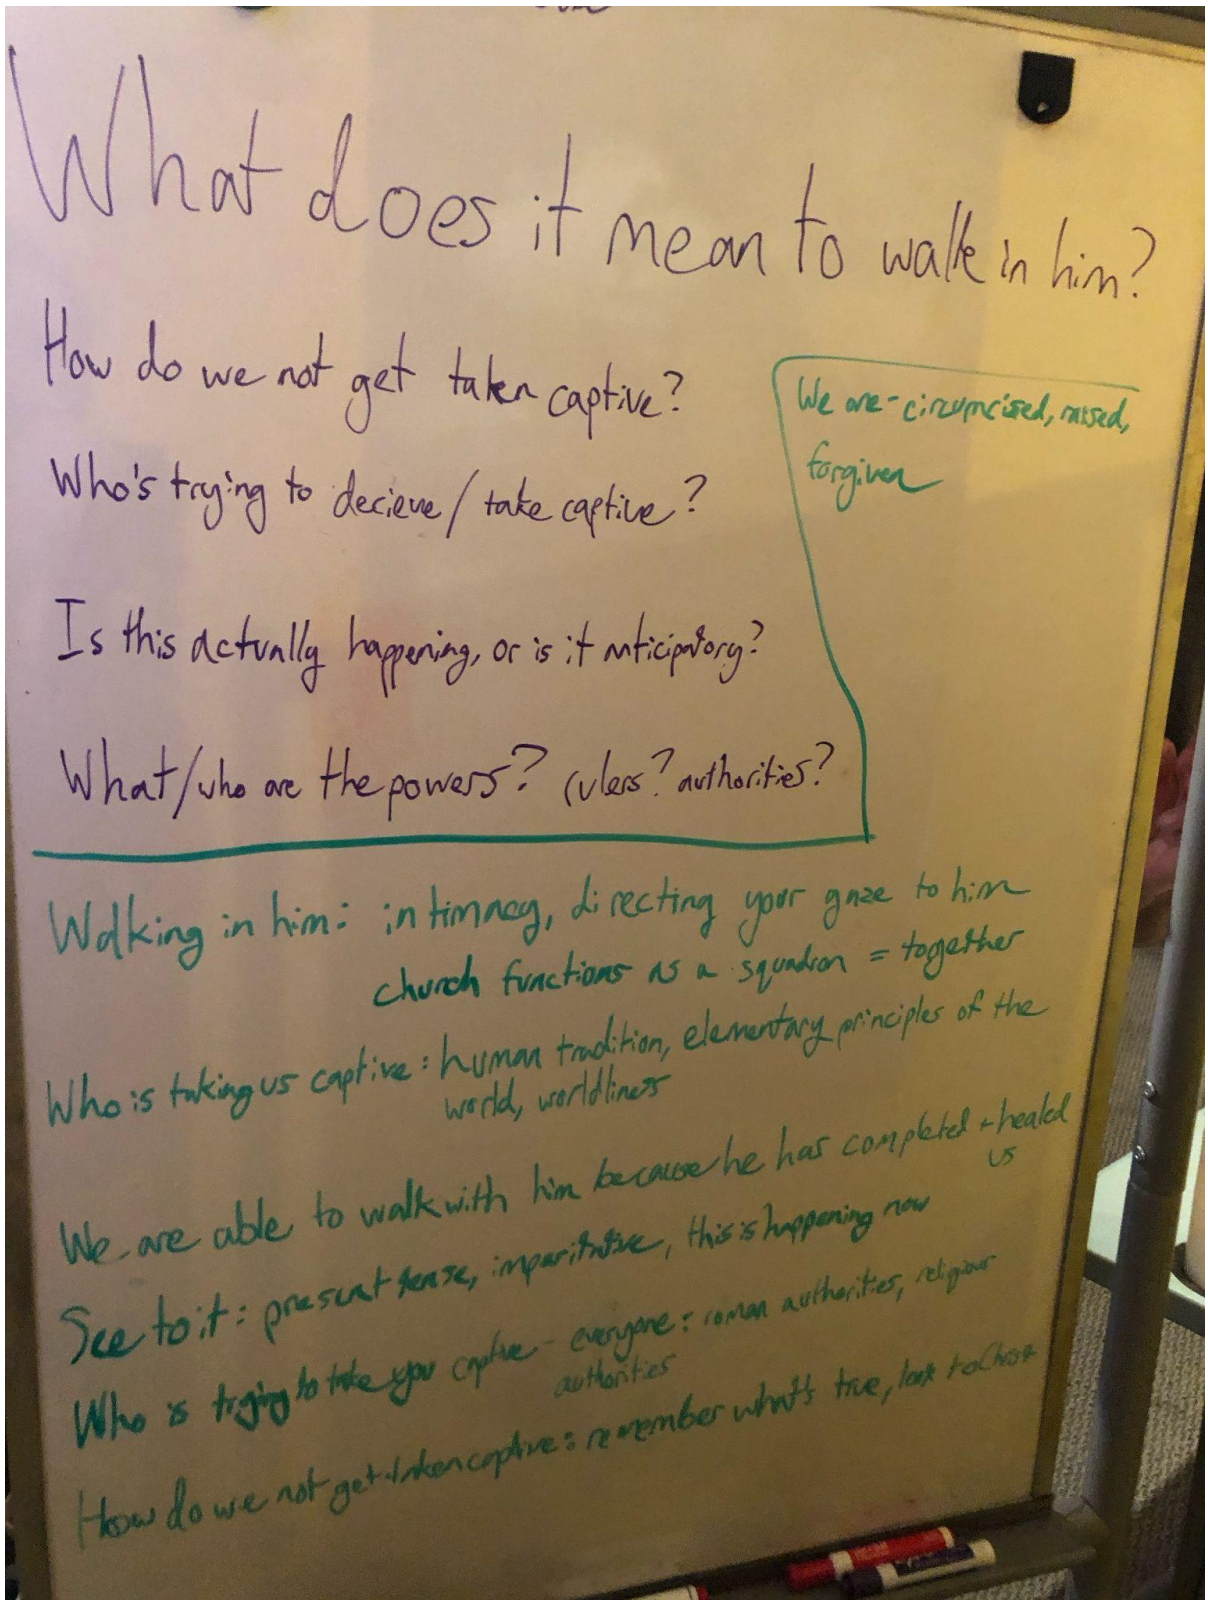 What does it mean to walk in him?
How do we not get taken captive?
Who's trying to decieve / take captive?
Is this actually happening, or is it anticipatory?
What/who are the powers? rulers? authorities?
We are - circumcised, raised,
forgiven
Walking in him: intimacy, directing your gaze to him
church functions as a squadron = together
Who is taking us captive: human tradition, elementary principles of the
world, worldliness
We are able to walk with him because he has completed + healed
us
See to it: present tense, imparitative, this is happening now
Who is trying to take you captive - everyone: roman authorities, religious
authorities
How do we not get taken captive: remember what's true, look to Christ